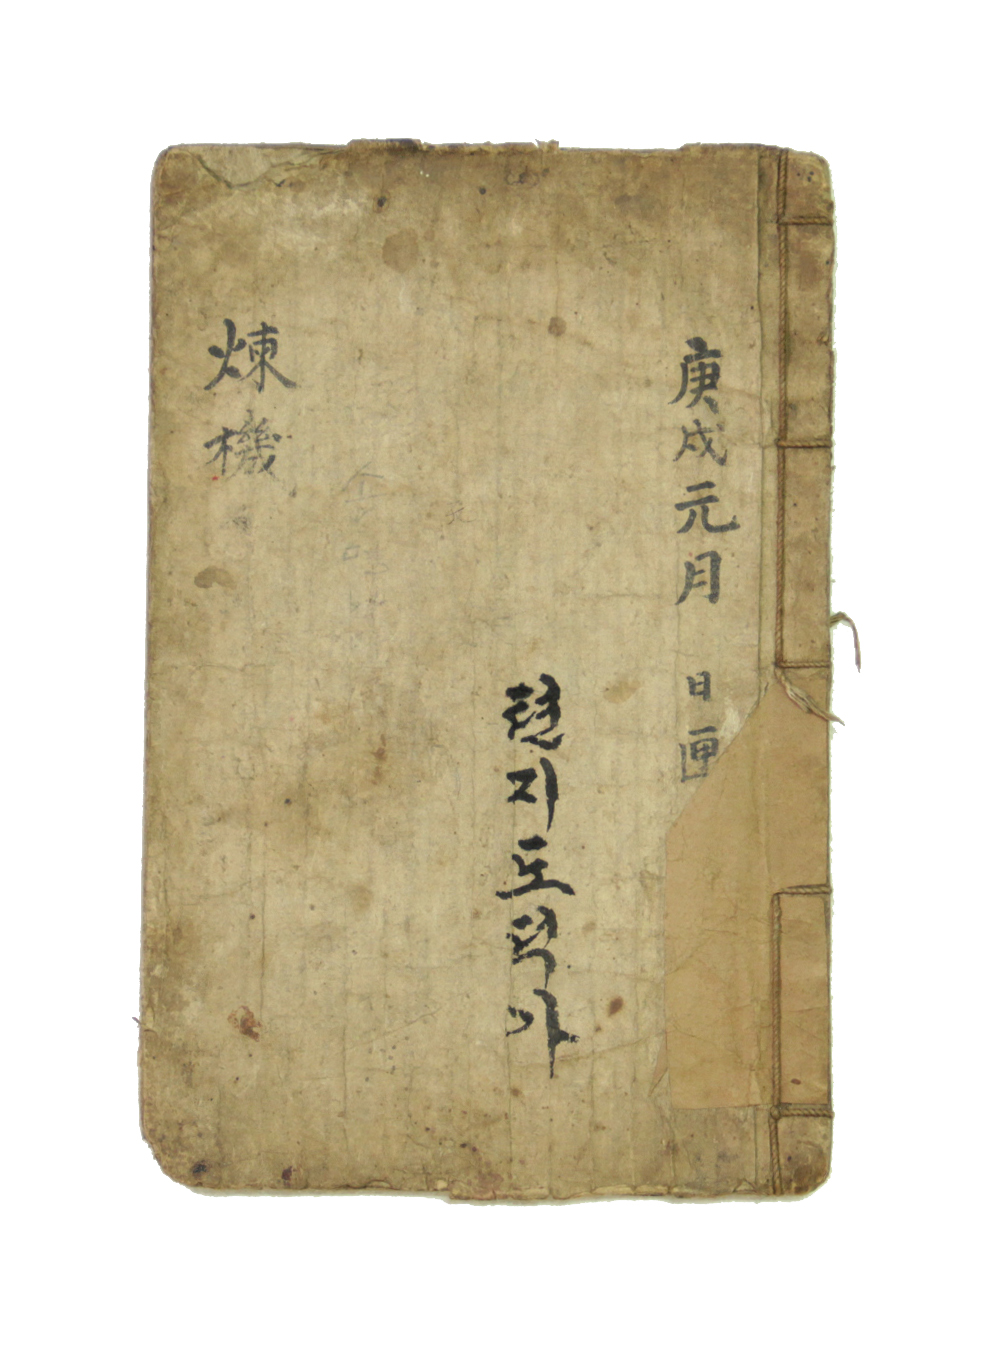 庚戌元月 日匣
텬지도덕가
煉機